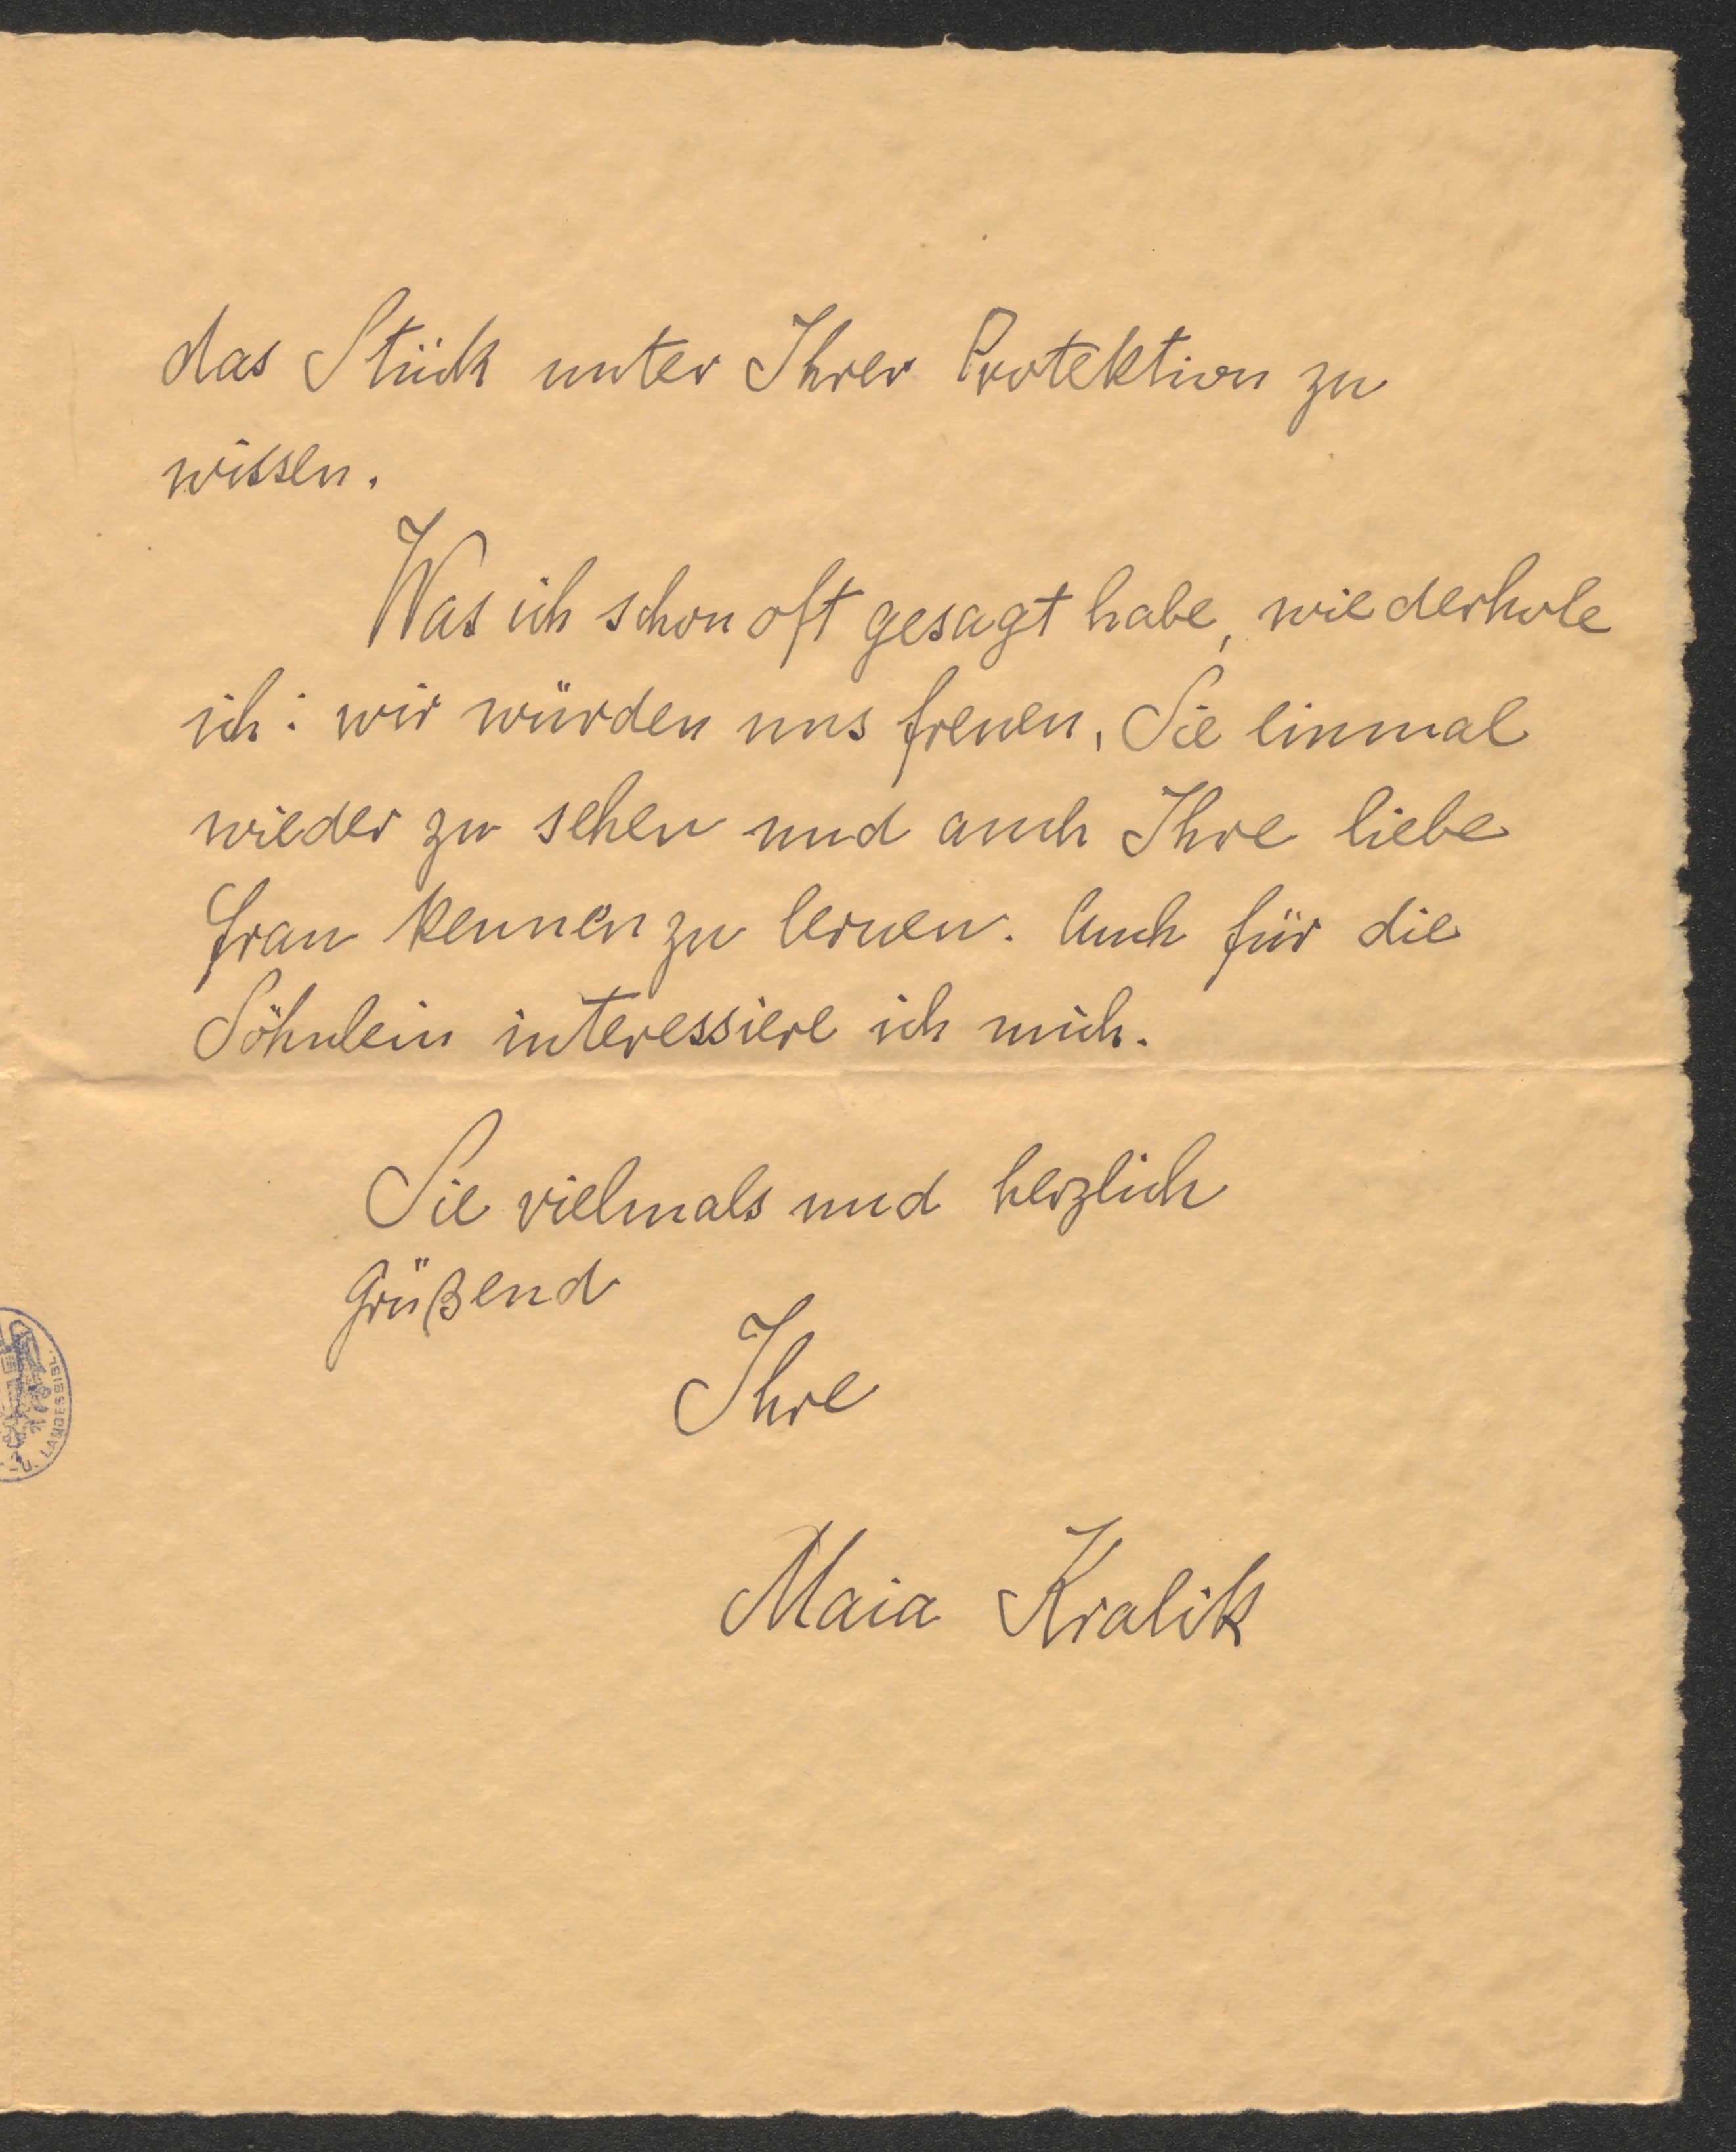 das Stück unter Ihrer Protektion zu
wissen.
Was ich schon oft gesagt habe, wiederhole
ich: wir würden uns freuen, Sie einmal
wieder zu sehen und auch Ihre liebe
Frau kennen zu lernen. Auch für die
Söhnlein interessiere ich mich.
Sie vielmals und herzlich
Grüßend
Ihre
Maia Kralik
U. LANDESBIBL.